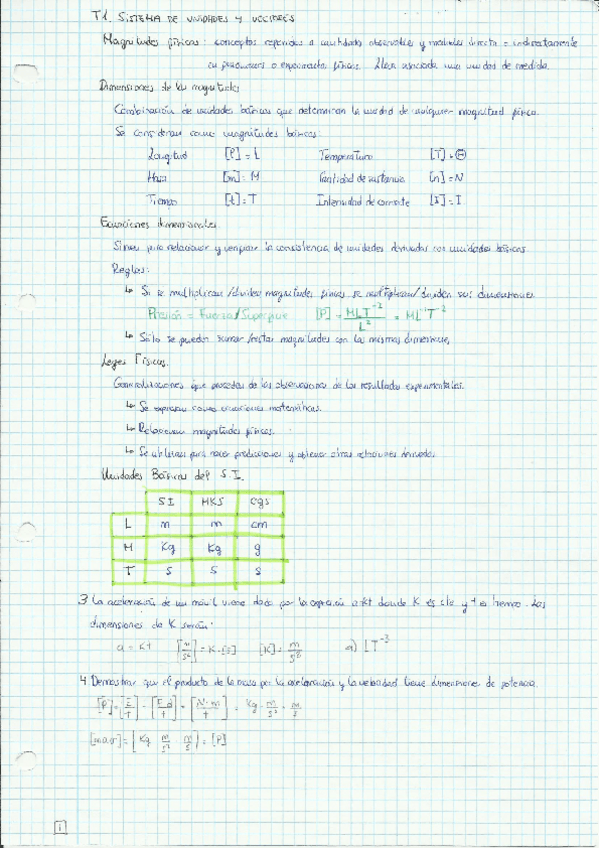 T1. SISTEMA DE UNIDADES Y VECTORES
Magnitudes físicas: conceptos referidos a cantidades observables y medibles directa o indirectamente
en fenómenos o experimentos físicos. Llevan asociada una unidad de medida.
Dimensiones de las magnitudes
Combinación de unidades básicas que determinan la unidad de cualquier magnitud física.
Se consideran como magnitudes básicas:
Longitud [l] = L Temperatura [T] = Θ
Masa [m] = M Cantidad de sustancia [n] = N
Tiempo [t] = T Intensidad de corriente [I] = I
Ecuaciones dimensionales
Sirven para relacionar y verificar la consistencia de unidades derivadas con unidades básicas
Reglas:
↳ Si se multiplican/dividen magnitudes físicas se multiplican/dividen sus dimensiones
Presión = Fuerza/Superficie [P] = MLT⁻² / L² = ML⁻¹T⁻²
↳ Sólo se pueden sumar/restar magnitudes con las mismas dimensiones
Leyes Físicas.
Generalizaciones que proceden de las observaciones de los resultados experimentales.
↳ Se expresan como ecuaciones matemáticas.
↳ Relacionan magnitudes físicas.
↳ Se utilizan para hacer predicciones y obtener otras relaciones derivadas.
Unidades Básicas del S.I.
SI MKS cgs
L m m cm
M Kg Kg g
T s s s
3 La aceleración de un móvil viene dada por la expresión a=kt donde K es cte y t es tiempo. Las
dimensiones de K serán:
a = Kt [m/s²] = K·[s] [K] = m/s³ a) LT⁻³
4 Demostrar que el producto de la masa por la aceleración y la velocidad tiene dimensiones de potencia.
[P] = [E/t] = [F·d/t] = [N·m/t] = Kg · m/s² · m/s
[m·a·v] = [Kg m/s² m/s] = [P]
1